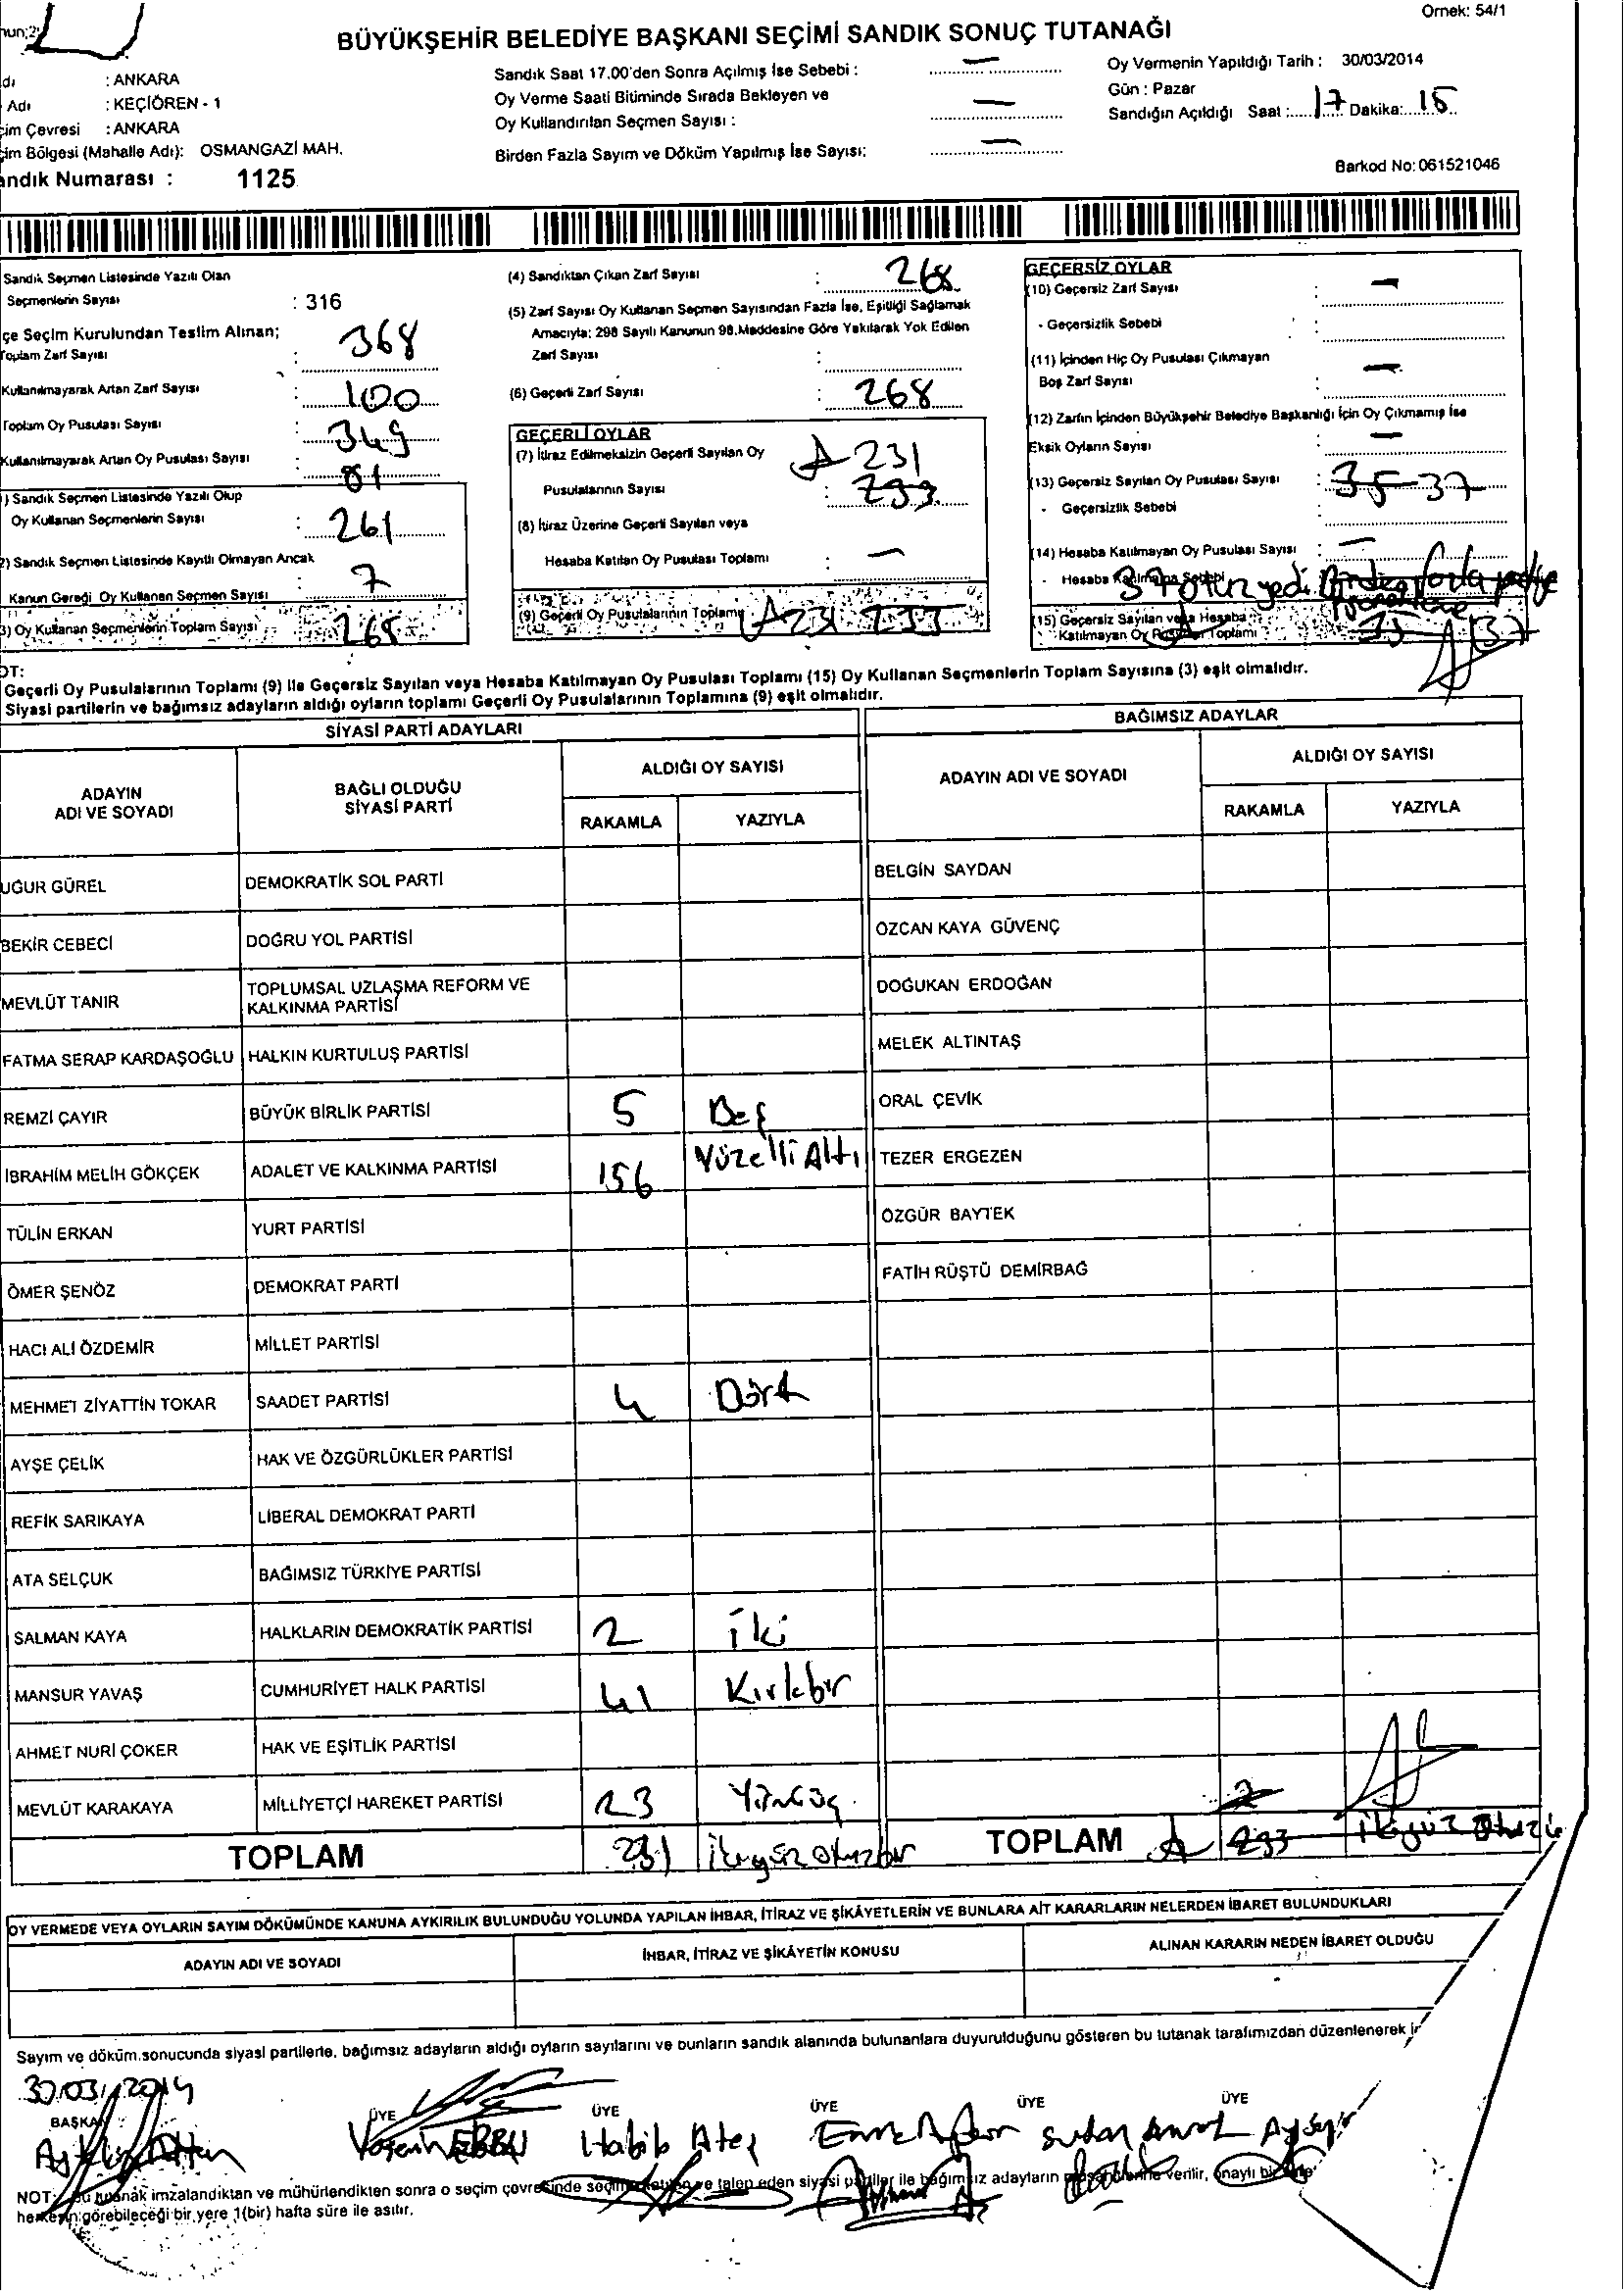 Örnek: 54/1
BÜYÜKŞEHİR BELEDİYE BAŞKANI SEÇİMİ SANDIK SONUÇ TUTANAĞI
: ANKARA
Adı : KEÇİÖREN - 1
Çevresi : ANKARA
Bölgesi (Mahalle Adı): OSMANGAZİ MAH.
Numarası : 1125
Sandık Saat 17.00'den Sonra Açılmış İse Sebebi : —
Oy Verme Saati Bitiminde Sırada Bekleyen ve
Oy Kullandırılan Seçmen Sayısı : —
Birden Fazla Sayım ve Döküm Yapılmış İse Sayısı: —
Oy Vermenin Yapıldığı Tarih : 30/03/2014
Gün : Pazar
Sandığın Açıldığı Saat : 17 Dakika: 15
Barkod No: 061521046
Sandık Seçmen Listesinde Yazılı Olan
Seçmenlerin Sayısı : 316
Seçim Kurulundan Teslim Alınan;
Toplam Zarf Sayısı : 368
Kullanılmayarak Artan Zarf Sayısı : 100
Toplam Oy Pusulası Sayısı : 349
Kullanılmayarak Artan Oy Pusulası Sayısı : 81
) Sandık Seçmen Listesinde Yazılı Olup
Oy Kullanan Seçmenlerin Sayısı : 261
2) Sandık Seçmen Listesinde Kayıtlı Olmayan Ancak
Kanun Gereği Oy Kullanan Seçmen Sayısı : 7
3) Oy Kullanan Seçmenlerin Toplam Sayısı : 268
(4) Sandıktan Çıkan Zarf Sayısı : 268
(5) Zarf Sayısı Oy Kullanan Seçmen Sayısından Fazla İse, Eşitliği Sağlamak
Amacıyla; 298 Sayılı Kanunun 98.Maddesine Göre Yakılarak Yok Edilen
Zarf Sayısı :
(6) Geçerli Zarf Sayısı : 268
GEÇERLİ OYLAR
(7) İtiraz Edilmeksizin Geçerli Sayılan Oy 231
Pusulalarının Sayısı : 233
(8) İtiraz Üzerine Geçerli Sayılan veya
Hesaba Katılan Oy Pusulası Toplamı : —
(9) Geçerli Oy Pusulalarının Toplamı 231 233
GEÇERSİZ OYLAR
(10) Geçersiz Zarf Sayısı : —
- Geçersizlik Sebebi :
(11) İçinden Hiç Oy Pusulası Çıkmayan
Boş Zarf Sayısı : —
(12) Zarfın İçinden Büyükşehir Belediye Başkanlığı İçin Oy Çıkmamış İse
Eksik Oyların Sayısı : —
(13) Geçersiz Sayılan Oy Pusulası Sayısı : 35 37
- Geçersizlik Sebebi :
(14) Hesaba Katılmayan Oy Pusulası Sayısı : —
- Hesaba Katılmama Sebebi
37 otuz yedi
(15) Geçersiz Sayılan veya Hesaba
Katılmayan Oy Pusulası Toplamı 35 37
Geçerli Oy Pusulalarının Toplamı (9) ile Geçersiz Sayılan veya Hesaba Katılmayan Oy Pusulası Toplamı (15) Oy Kullanan Seçmenlerin Toplam Sayısına (3) eşit olmalıdır.
Siyasi partilerin ve bağımsız adayların aldığı oyların toplamı Geçerli Oy Pusulalarının Toplamına (9) eşit olmalıdır.
SİYASİ PARTİ ADAYLARI
ADAYIN ADI VE SOYADI BAĞLI OLDUĞU SİYASİ PARTİ ALDIĞI OY SAYISI
RAKAMLA YAZIYLA
UĞUR GÜREL DEMOKRATİK SOL PARTİ
BEKİR CEBECİ DOĞRU YOL PARTİSİ
MEVLÜT TANIR TOPLUMSAL UZLAŞMA REFORM VE
KALKINMA PARTİSİ
FATMA SERAP KARDAŞOĞLU HALKIN KURTULUŞ PARTİSİ
REMZİ ÇAYIR BÜYÜK BİRLİK PARTİSİ 5 Beş
İBRAHİM MELİH GÖKÇEK ADALET VE KALKINMA PARTİSİ 156 Yüzelli Altı
TÜLİN ERKAN YURT PARTİSİ
ÖMER ŞENÖZ DEMOKRAT PARTİ
HACI ALİ ÖZDEMİR MİLLET PARTİSİ
MEHMET ZİYATTİN TOKAR SAADET PARTİSİ 4 Dört
AYŞE ÇELİK HAK VE ÖZGÜRLÜKLER PARTİSİ
REFİK SARIKAYA LİBERAL DEMOKRAT PARTİ
ATA SELÇUK BAĞIMSIZ TÜRKİYE PARTİSİ
SALMAN KAYA HALKLARIN DEMOKRATİK PARTİSİ 2 İki
MANSUR YAVAŞ CUMHURİYET HALK PARTİSİ 41 Kırkbir
AHMET NURİ ÇOKER HAK VE EŞİTLİK PARTİSİ
MEVLÜT KARAKAYA MİLLİYETÇİ HAREKET PARTİSİ 23 Yirmiüç
TOPLAM 231 İkiyüz otuzbir
BAĞIMSIZ ADAYLAR
ADAYIN ADI VE SOYADI ALDIĞI OY SAYISI
RAKAMLA YAZIYLA
BELGİN SAYDAN
ÖZCAN KAYA GÜVENÇ
DOĞUKAN ERDOĞAN
MELEK ALTINTAŞ
ORAL ÇEVİK
TEZER ERGEZEN
ÖZGÜR BAYTEK
FATİH RÜŞTÜ DEMİRBAĞ
2
TOPLAM 233 İkiyüz
OY VERMEDE VEYA OYLARIN SAYIM DÖKÜMÜNDE KANUNA AYKIRILIK BULUNDUĞU YOLUNDA YAPILAN İHBAR, İTİRAZ VE ŞİKÂYETLERİN VE BUNLARA AİT KARARLARIN NELERDEN İBARET BULUNDUKLARI
ADAYIN ADI VE SOYADI İHBAR, İTİRAZ VE ŞİKÂYETİN KONUSU ALINAN KARARIN NEDEN İBARET OLDUĞU
Sayım ve döküm sonucunda siyasi partilerle, bağımsız adayların aldığı oyların sayılarını ve bunların sandık alanında bulunanlara duyurulduğunu gösteren bu tutanak tarafımızdan düzenlenerek
30/03/2014
BAŞKAN ÜYE ÜYE ÜYE ÜYE ÜYE
Habib Ateş
NOT: Bu tutanak imzalandıktan ve mühürlendikten sonra o seçim çevresinde ve talep eden siyasi partiler ile bağımsız adayların verilir, onaylı bir
herkesin görebileceği bir yere 1(bir) hafta süre ile asılır.